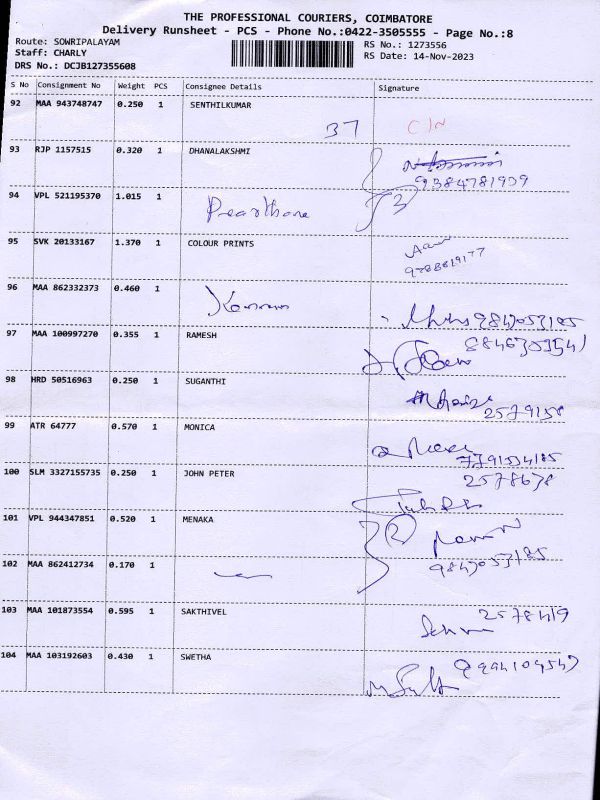 THE PROFESSIONAL COURIERS, COIMBATORE
Delivery Runsheet - PCS - Phone No.:0422-3505555 - Page No.:8
Route: SOWRIPALAYAM
Staff: CHARLY
DRS No.: DCJB127355608
RS No.: 1273556
RS Date: 14-Nov-2023
S No Consignment No Weight PCS Consignee Details Signature
92 MAA 943748747 0.250 1 SENTHILKUMAR
37
93 RJP 1157515 0.320 1 DHANALAKSHMI
9384781909
94 VPL 521195370 1.015 1
3
95 SVK 20133167 1.370 1 COLOUR PRINTS
96 MAA 862332373 0.460 1
Kannan
97 MAA 100997270 0.355 1 RAMESH
98 HRD 50516963 0.250 1 SUGANTHI
99 ATR 64777 0.570 1 MONICA
100 SLM 3327155735 0.250 1 JOHN PETER
2578678
101 VPL 944347851 0.520 1 MENAKA
2
102 MAA 862412734 0.170 1
103 MAA 101873554 0.595 1 SAKTHIVEL
104 MAA 103192603 0.430 1 SWETHA